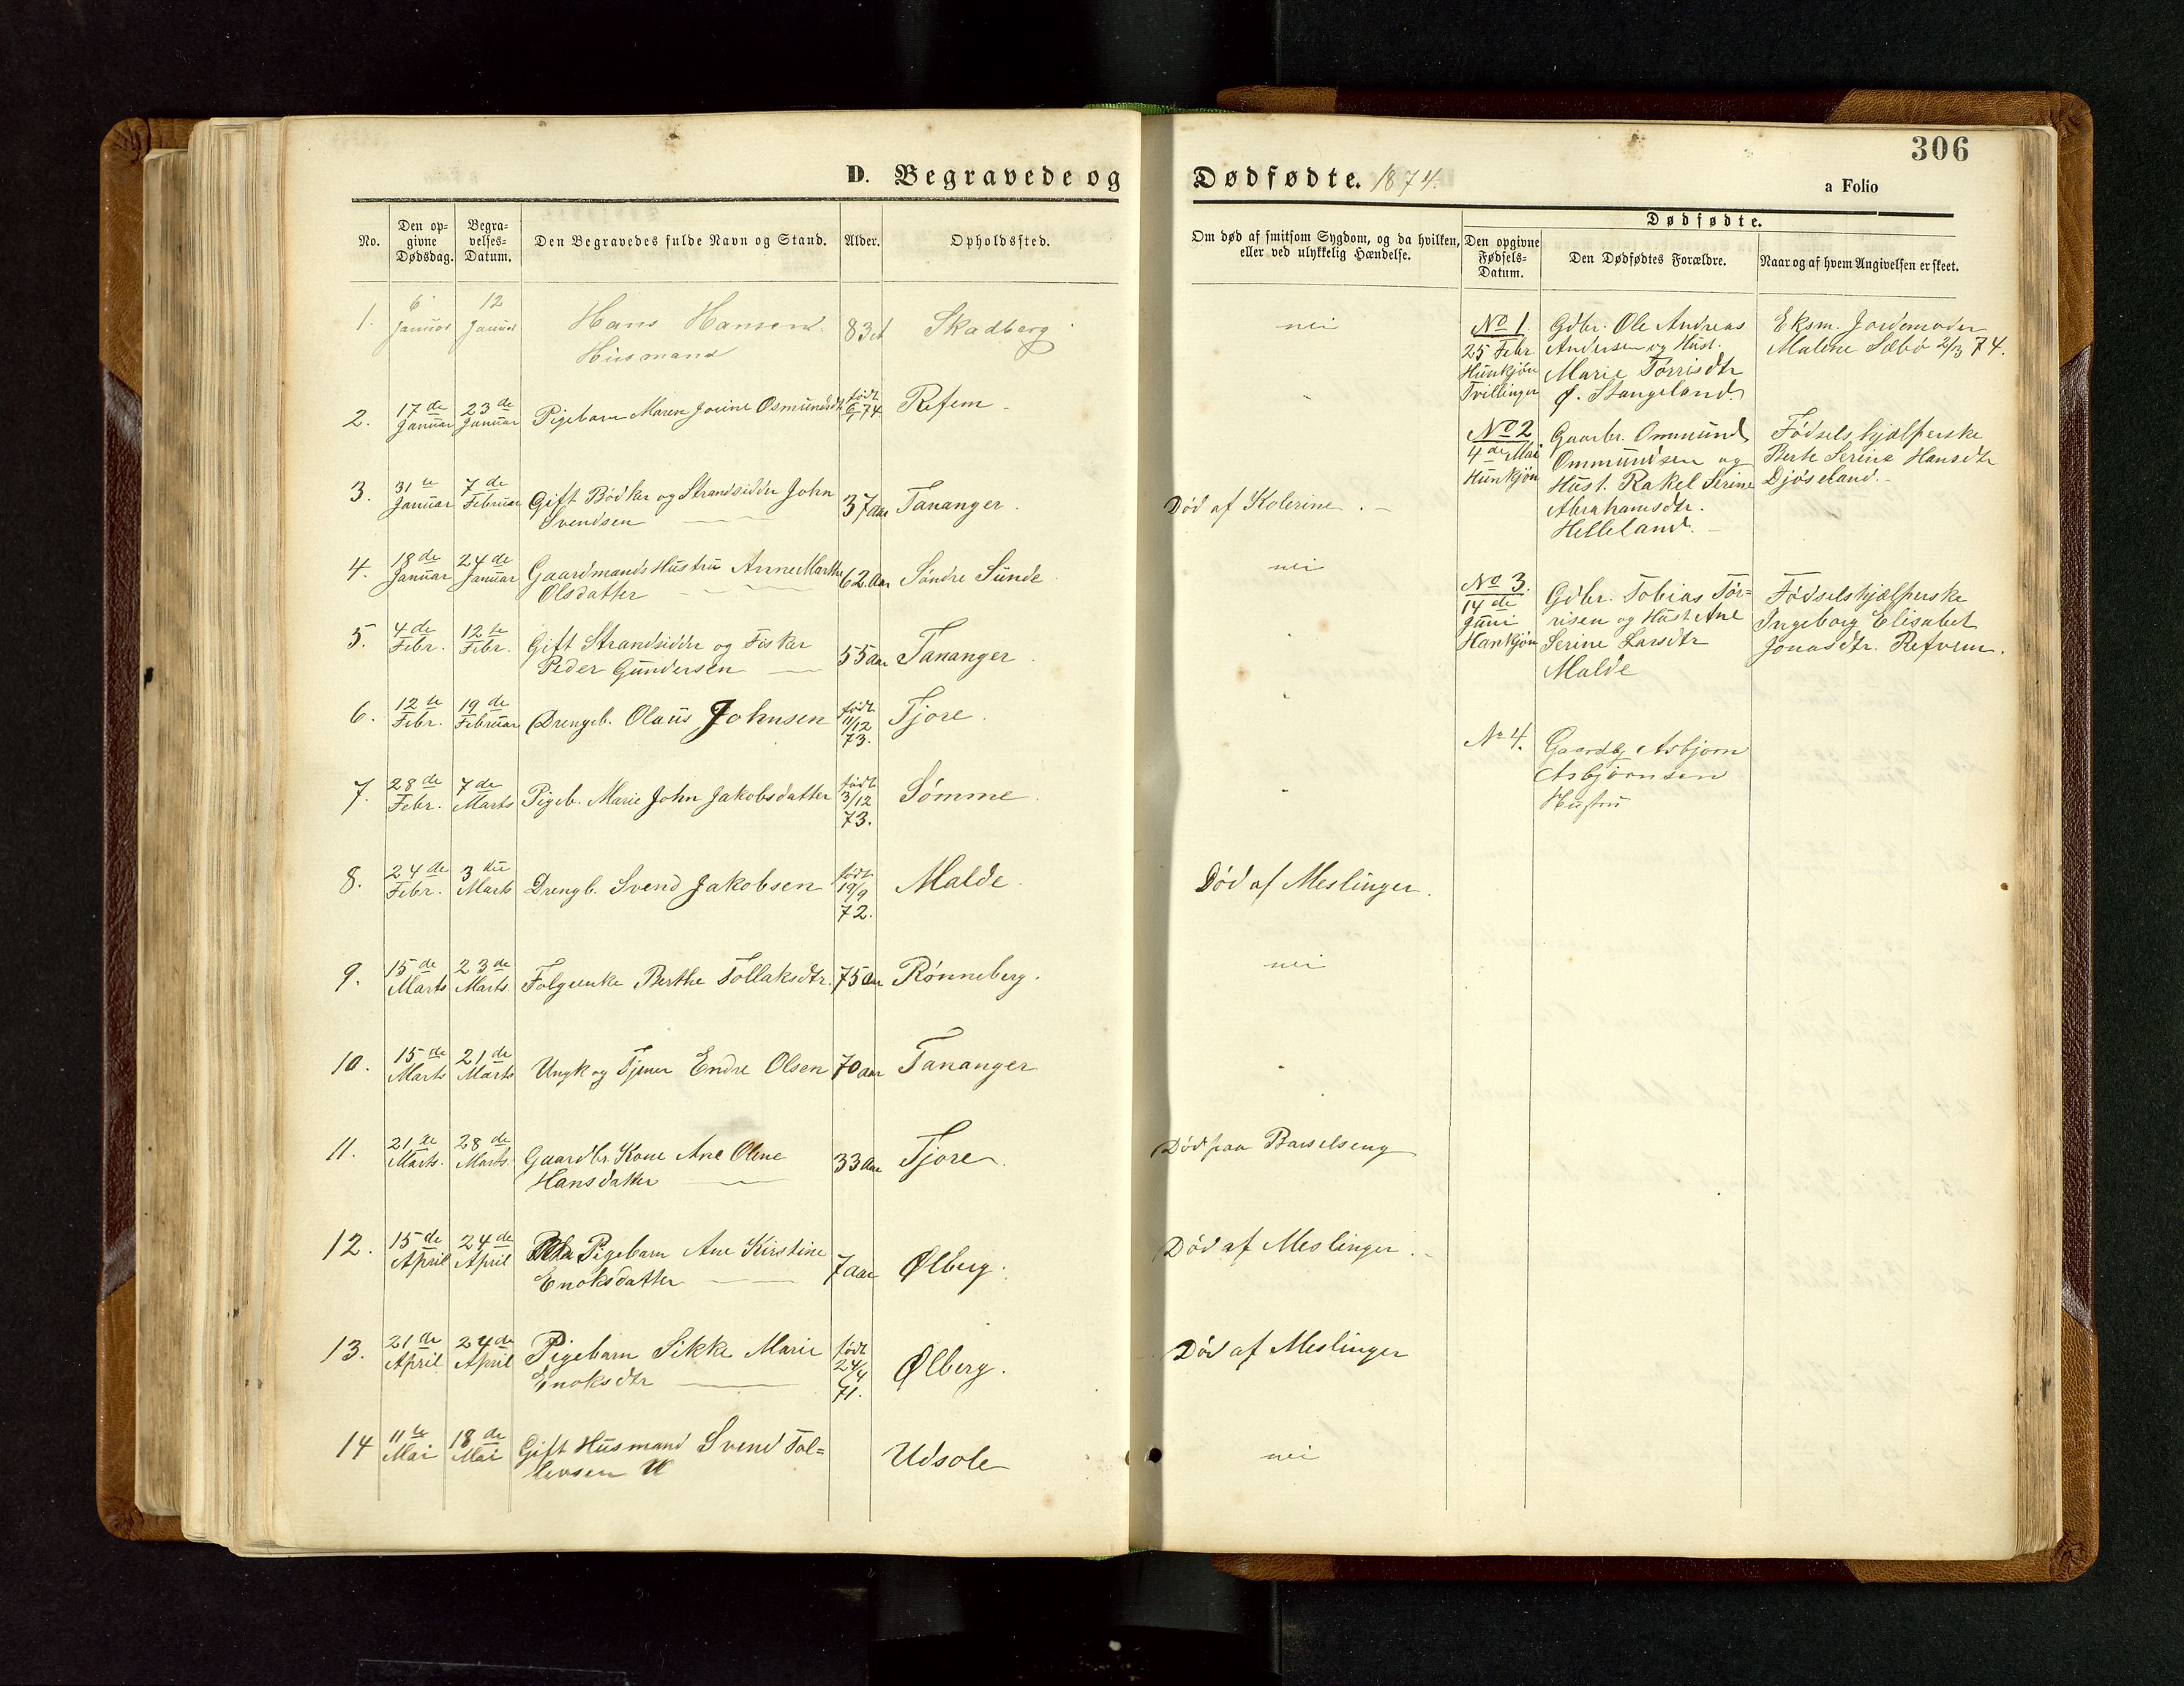 306
D. Begravede og Dødfødte. 1874.
a Folio
No.
Den op-
givne
Dødsdag.
Begra-
velses-
Datum.
Den Begravedes fulde Navn og Stand.
Alder.
Opholdssted.
Om død af smitsom Sygdom, og da hvilken,
eller ved ulykkelig Hændelse.
Dødfødte.
Den opgivne
Fødsels-
Datum.
Den Dødfødtes Forældre.
Naar og af hvem Angivelsen er skeet.
1. 6 Januar 12 Januar Hans Hansen 83 Skadberg nei
Husmand
2. 17de Januar 23de Januar Pigebarn Maren Josine Osmundsdt født 6/1 74 Refem
3. 31te Januar 7de Februar Gift Bødker og Strandsidder John 37 aar Tananger. Død af Kolerine.
Svendsen
4. 18de Januar 24de Januar Gaardmands Hustru Anne Marthe 62 aar Søndre Sunde nei
Olsdatter
5. 4de Febr. 12te Febr. Gift Strandsidder og Fisker 55 aar Tananger
Peder Gundersen
6. 12te Febr. 19de Februar Drengeb. Olaus Johnsen født 11/12 73. Tjore.
7. 28de Febr. 7de Marts Pigeb. Marie John Jakobsdatter født 3/12 73. Sømme
8. 24de Febr. 3die Marts Drengb. Svend Jakobsen født 19/9 72. Malde Død af Meslinger.
9. 15de Marts 23de Marts. Folgeenke Berthe Tollaksdtr. 75 aar Rønneberg. nei
10. 15de Marts 21de Marts Ungk og Tjener Endre Olsen 70 aar Tananger
11. 21de Marts. 28de Marts. Gaardbr. Kone Ane Olene 33 aar Tjore Død paa Barselseng
Hansdatter
12. 15de April 24de April Pigebarn Ane Kirstine 7 aar Ølberg. Død af Meslinger.
Enoksdatter
13. 21de April 24de April Pigebarn Sikke Marie født 24/4 71. Ølberg. Død af Meslinger
Enoksdtr
14 11te Mai 18de Mai Gift Husmand Svend Tol= Udsole nei
levsen
No 1.
25 Febr.
Hunkjøn
Tvillinger
Gdbr. Ole Andreas
Andersen og Hust.
Marie Torrisdtr
Ø. Stangeland
Eksm. Jordemoder
Malene Sæbø 2/3 74.
No 2
4de Mai
Hunkjøn
Gaarbr. Ommund
Ommundsen og
Hust. Rakel Serine
Abrahamsdtr.
Helleland.
Fødselshjælperske
Berte Serine Hansdtr
Djøseland.
No 3.
14de
Juni
Hankjøn
Gdbr. Tobias Tor=
risen og Hust Ane
Serine Larsdtr
Malde
Fødselshjælperske
Ingeborg Elisabet
Jonasdtr. Refvem.
No 4.
Gaardbr Asbjørn
Asbjørnsen
Hustru